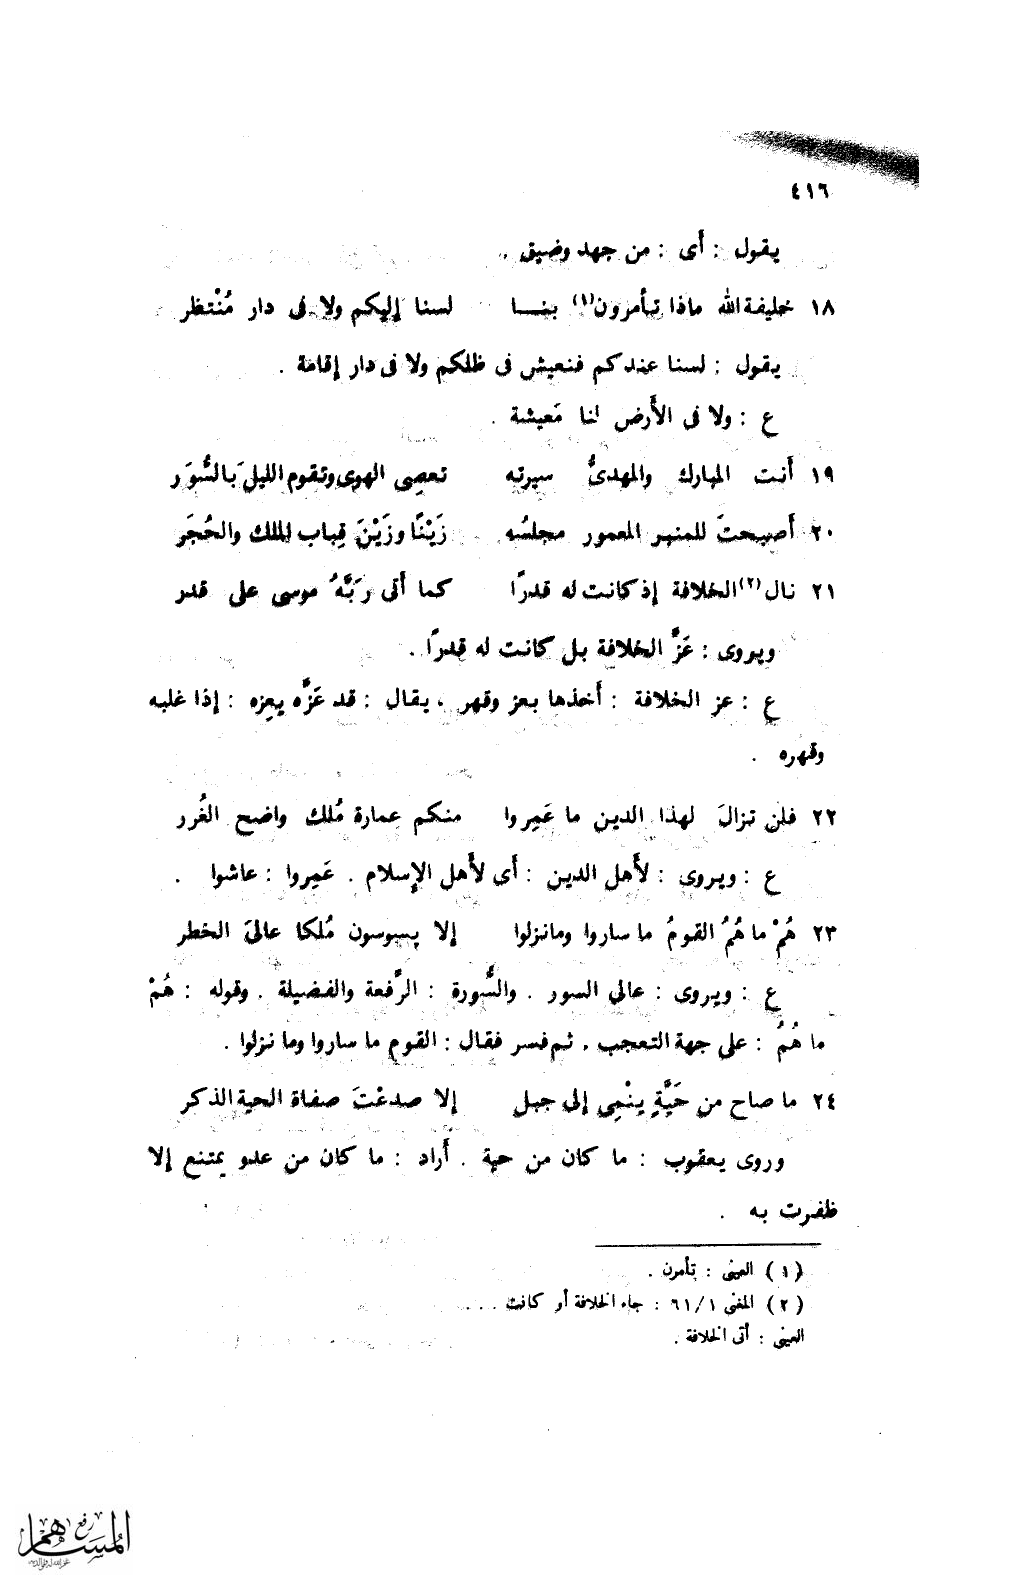 ٤١٦
يقول : أَى : من جهد وضيق .
١٨ خليفة الله ماذا تأمرون(١) بنا لسنا إليكم ولا فى دار مُنْتظر
يقول : لسنا عندكم فنعيش فى ظلكم ولا فى دار إقامة .
ع : ولا فى الأَرض لنا مَعيشة .
١٩ أَنت المبارك والمهدىُّ سيرته تعصِى الهوى وتقوم الليلَ بالسُّوَر
٢٠ أَصبحتَ للمنبر المعمور مجلسُه زَيْنًا وزَيْنَ قِباب الملك والحُجَر
٢١ نال(٢) الخلافة إذ كانت له قدرًا كما أَتى رَبَّهُ موسى على قدر
ويروى : عَزَّ الخلافة بل كانت له قدرًا .
ع : عز الخلافة : أَخذها بعز وقهر ، يقال : قد عَزَّه يعِزه : إذا غلبه
وقهره .
٢٢ فلن تزالَ لهذا الدين ما عَمِروا منكم عمارة مُلك واضح الغُرر
ع : ويروى : لأَهل الدين : أَى لأَهل الإِسلام . عَمِروا : عاشوا .
٢٣ هُمْ ما هُمُ القومُ ما ساروا وما نزلوا إلا يسوسون مُلكا عالىَ الخطر
ع : ويروى : عالى السور . والسُّورة : الرِّفعة والفضيلة . وقوله : هُمْ
ما هُمُ : على جهة التعجب . ثم فسر فقال : القوم ما ساروا وما نزلوا .
٢٤ ما صاح من حَيَّةٍ يَنْمِى إلى جبل إلا صدعْتَ صفاة الحية الذكر
وروى يعقوب : ما كان من حية . أَراد : ما كان من عدو يمتنع إلا
ظفرت به .
(١) العينى : تأمرن .
(٢) المغنى ٦١/١ : جاء الخلافة أو كانت . . .
العينى : أتى الخلافة .
المساهم
رفع